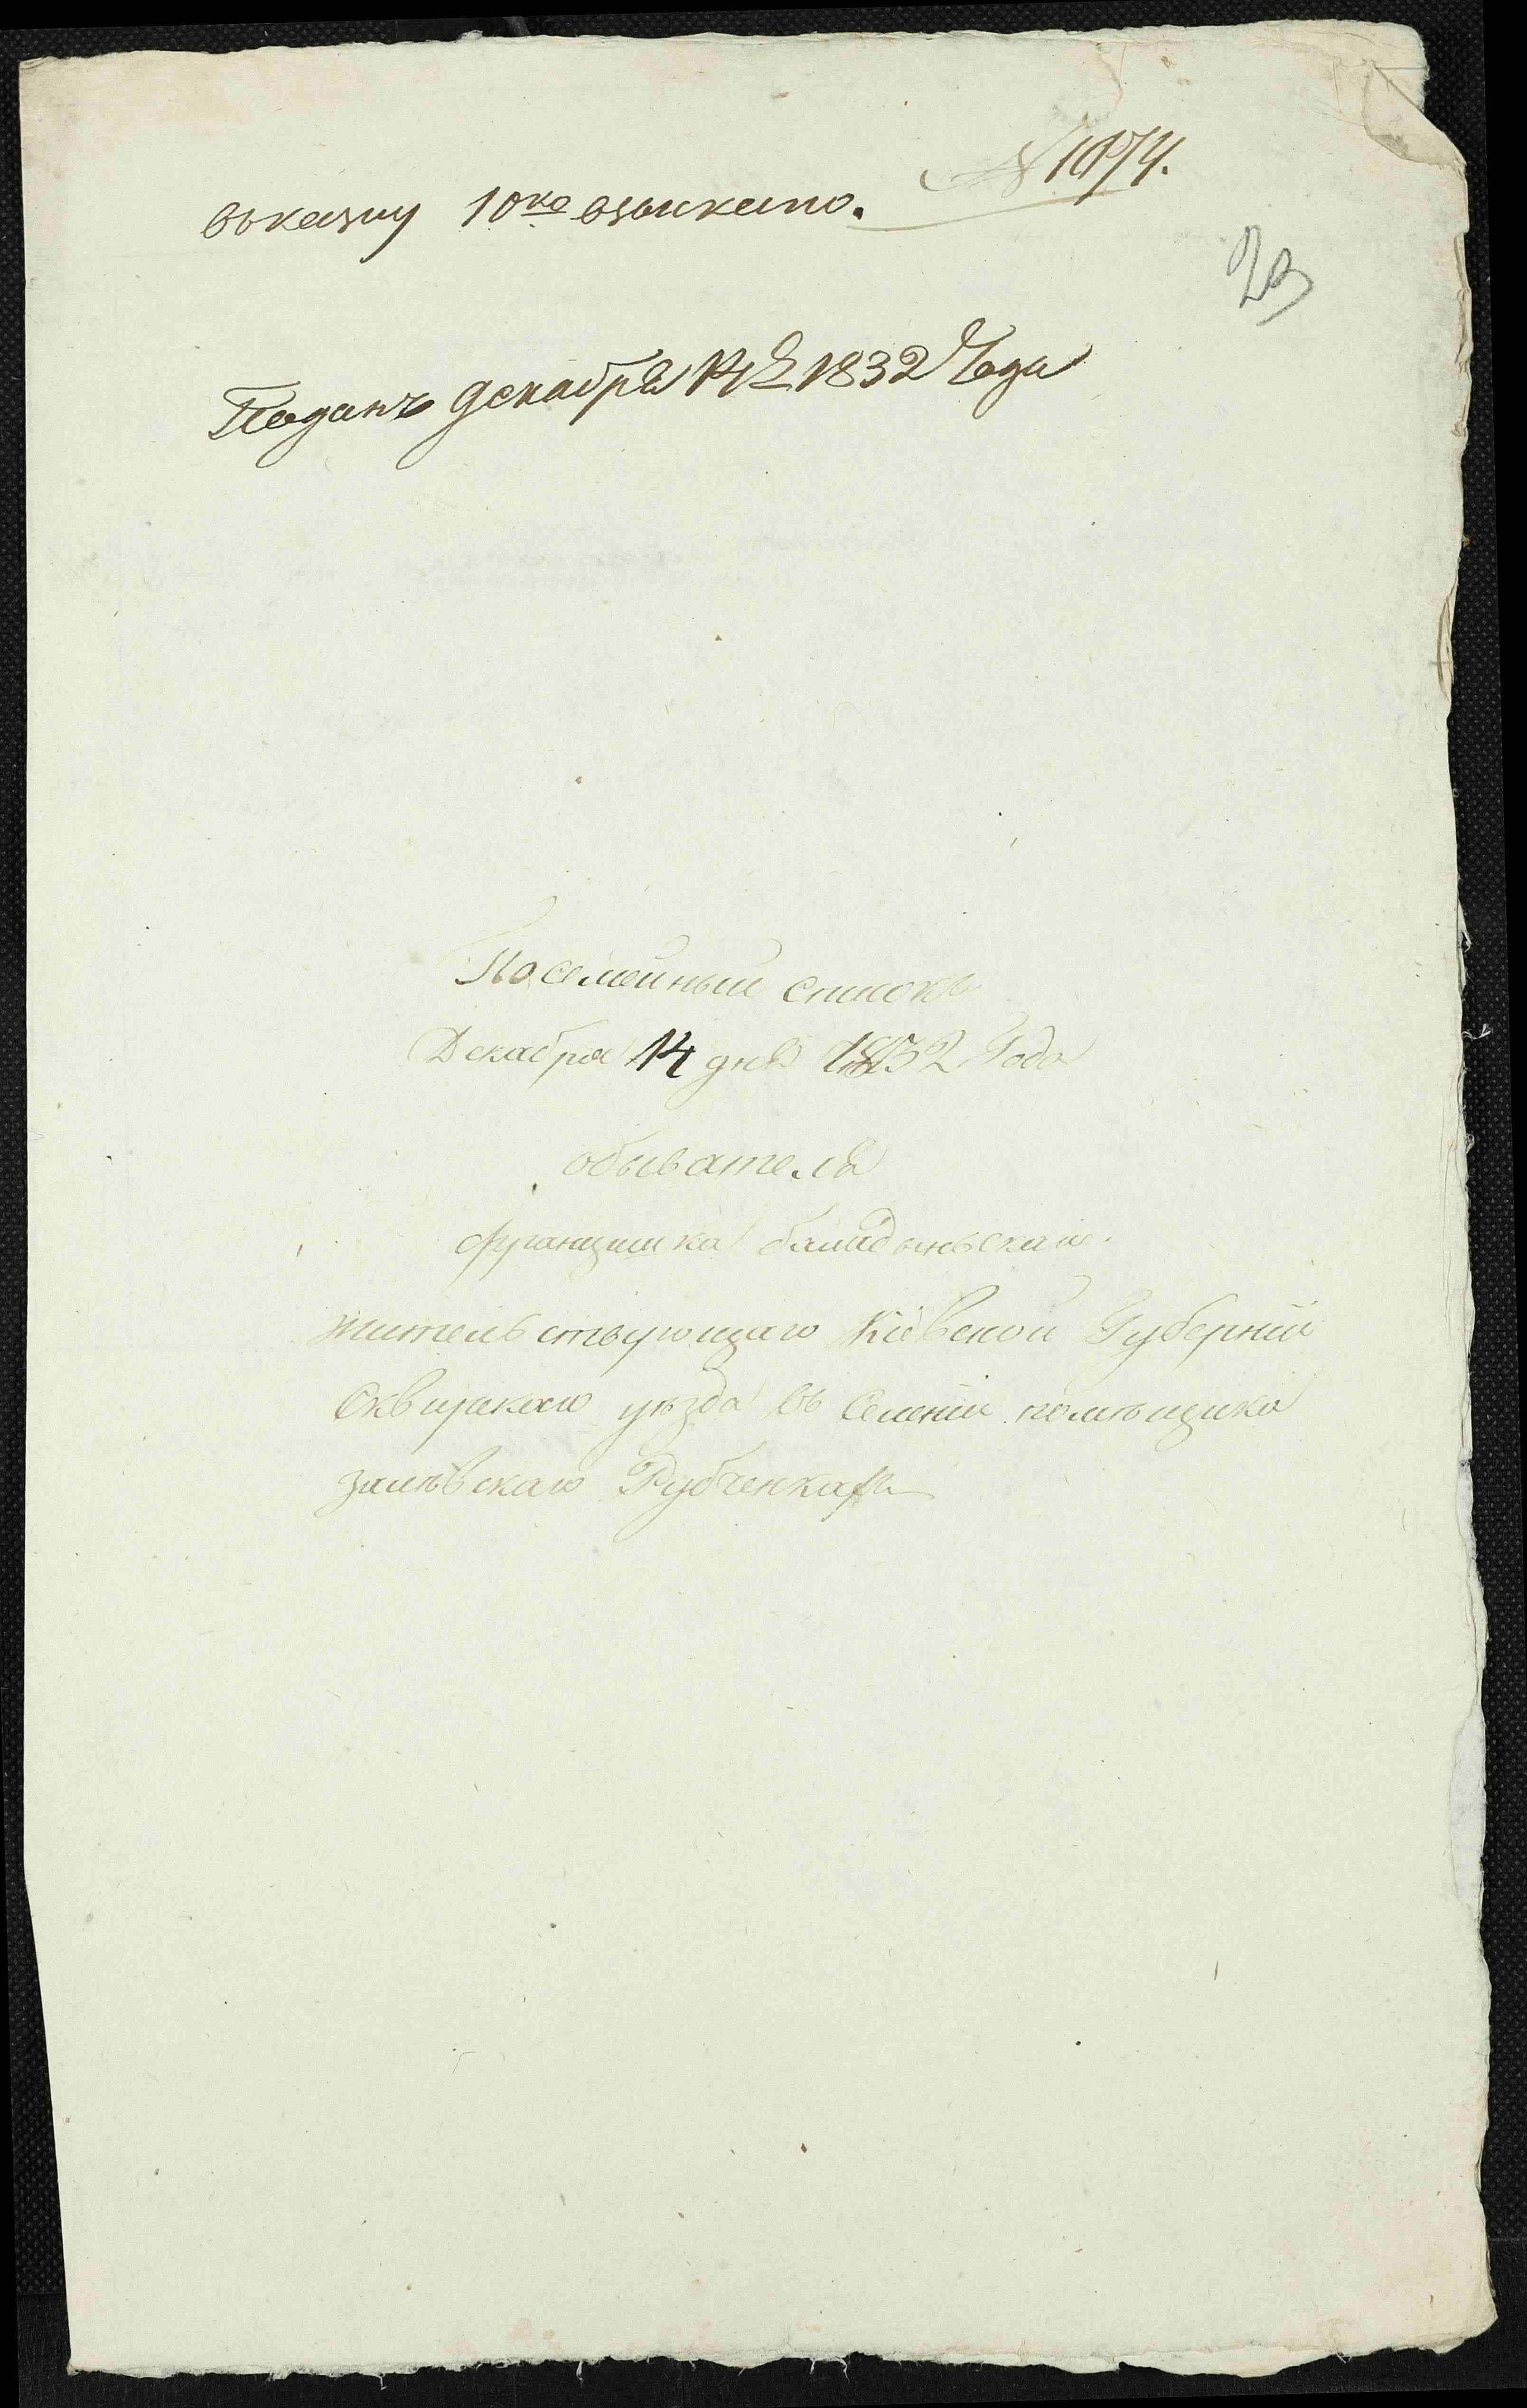 № 1074.
въ казну 10ко взыскато.
23
Поданъ декабря 14 1832 Года
Посемейный списокъ
Декабря 14 дня 1832 Года
обывателя
Францишка
жительствующаго Кіевской Губерніи
Сквирскаго уѣзда въ Селеніи помѣщика
Залѣвскаго Рубченкахъ